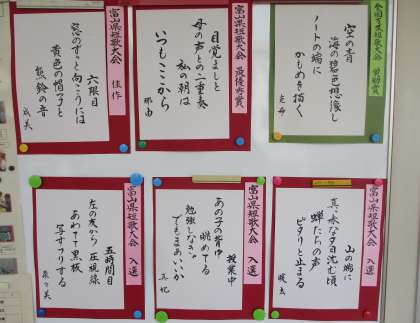 全国子供短歌大会 奨励賞
空の青
海の碧を想像し
ノートの端に
かもめ描く
富山県短歌大会 最優秀賞
目覚ましと
母の声との二重奏
私の朝は
いつもここから
那由
富山県短歌大会 佳作
六限目
窓のずっと向こうには
黄色の帽子と
熊鈴の音
成美
富山県短歌大会 入選
山の端に
真っ赤な夕日沈む頃
蝉たちの声
ピタリと止まる
富山県短歌大会 入選
授業中
あの子の背中
眺めてる
勉強しなきゃ
でもまあいいか
富山県短歌大会 入選
五時間目
左の友から圧視線
あわてて黒板
写すフリする